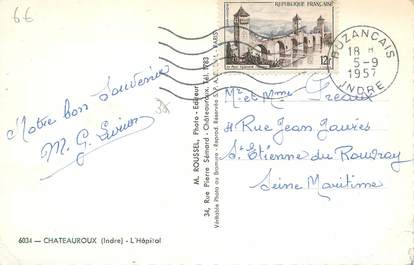 66
RÉPUBLIQUE FRANÇAISE
12F
BUZANÇAIS
18 H
5-9
1957
INDRE
Notre bon Souvenir
M. G.
38
M. ROUSSEL, Photo - Éditeur
34, Rue Pierre Sémard - Châteauroux. Tél. 9783
Véritable Photo au Bromure - Reprod. Réservée
Mr et Mme Creaux
Rue Jean Jaurès
St Etienne du Rouvray
Seine Maritime
6034 — CHATEAUROUX (Indre) - L'Hôpital